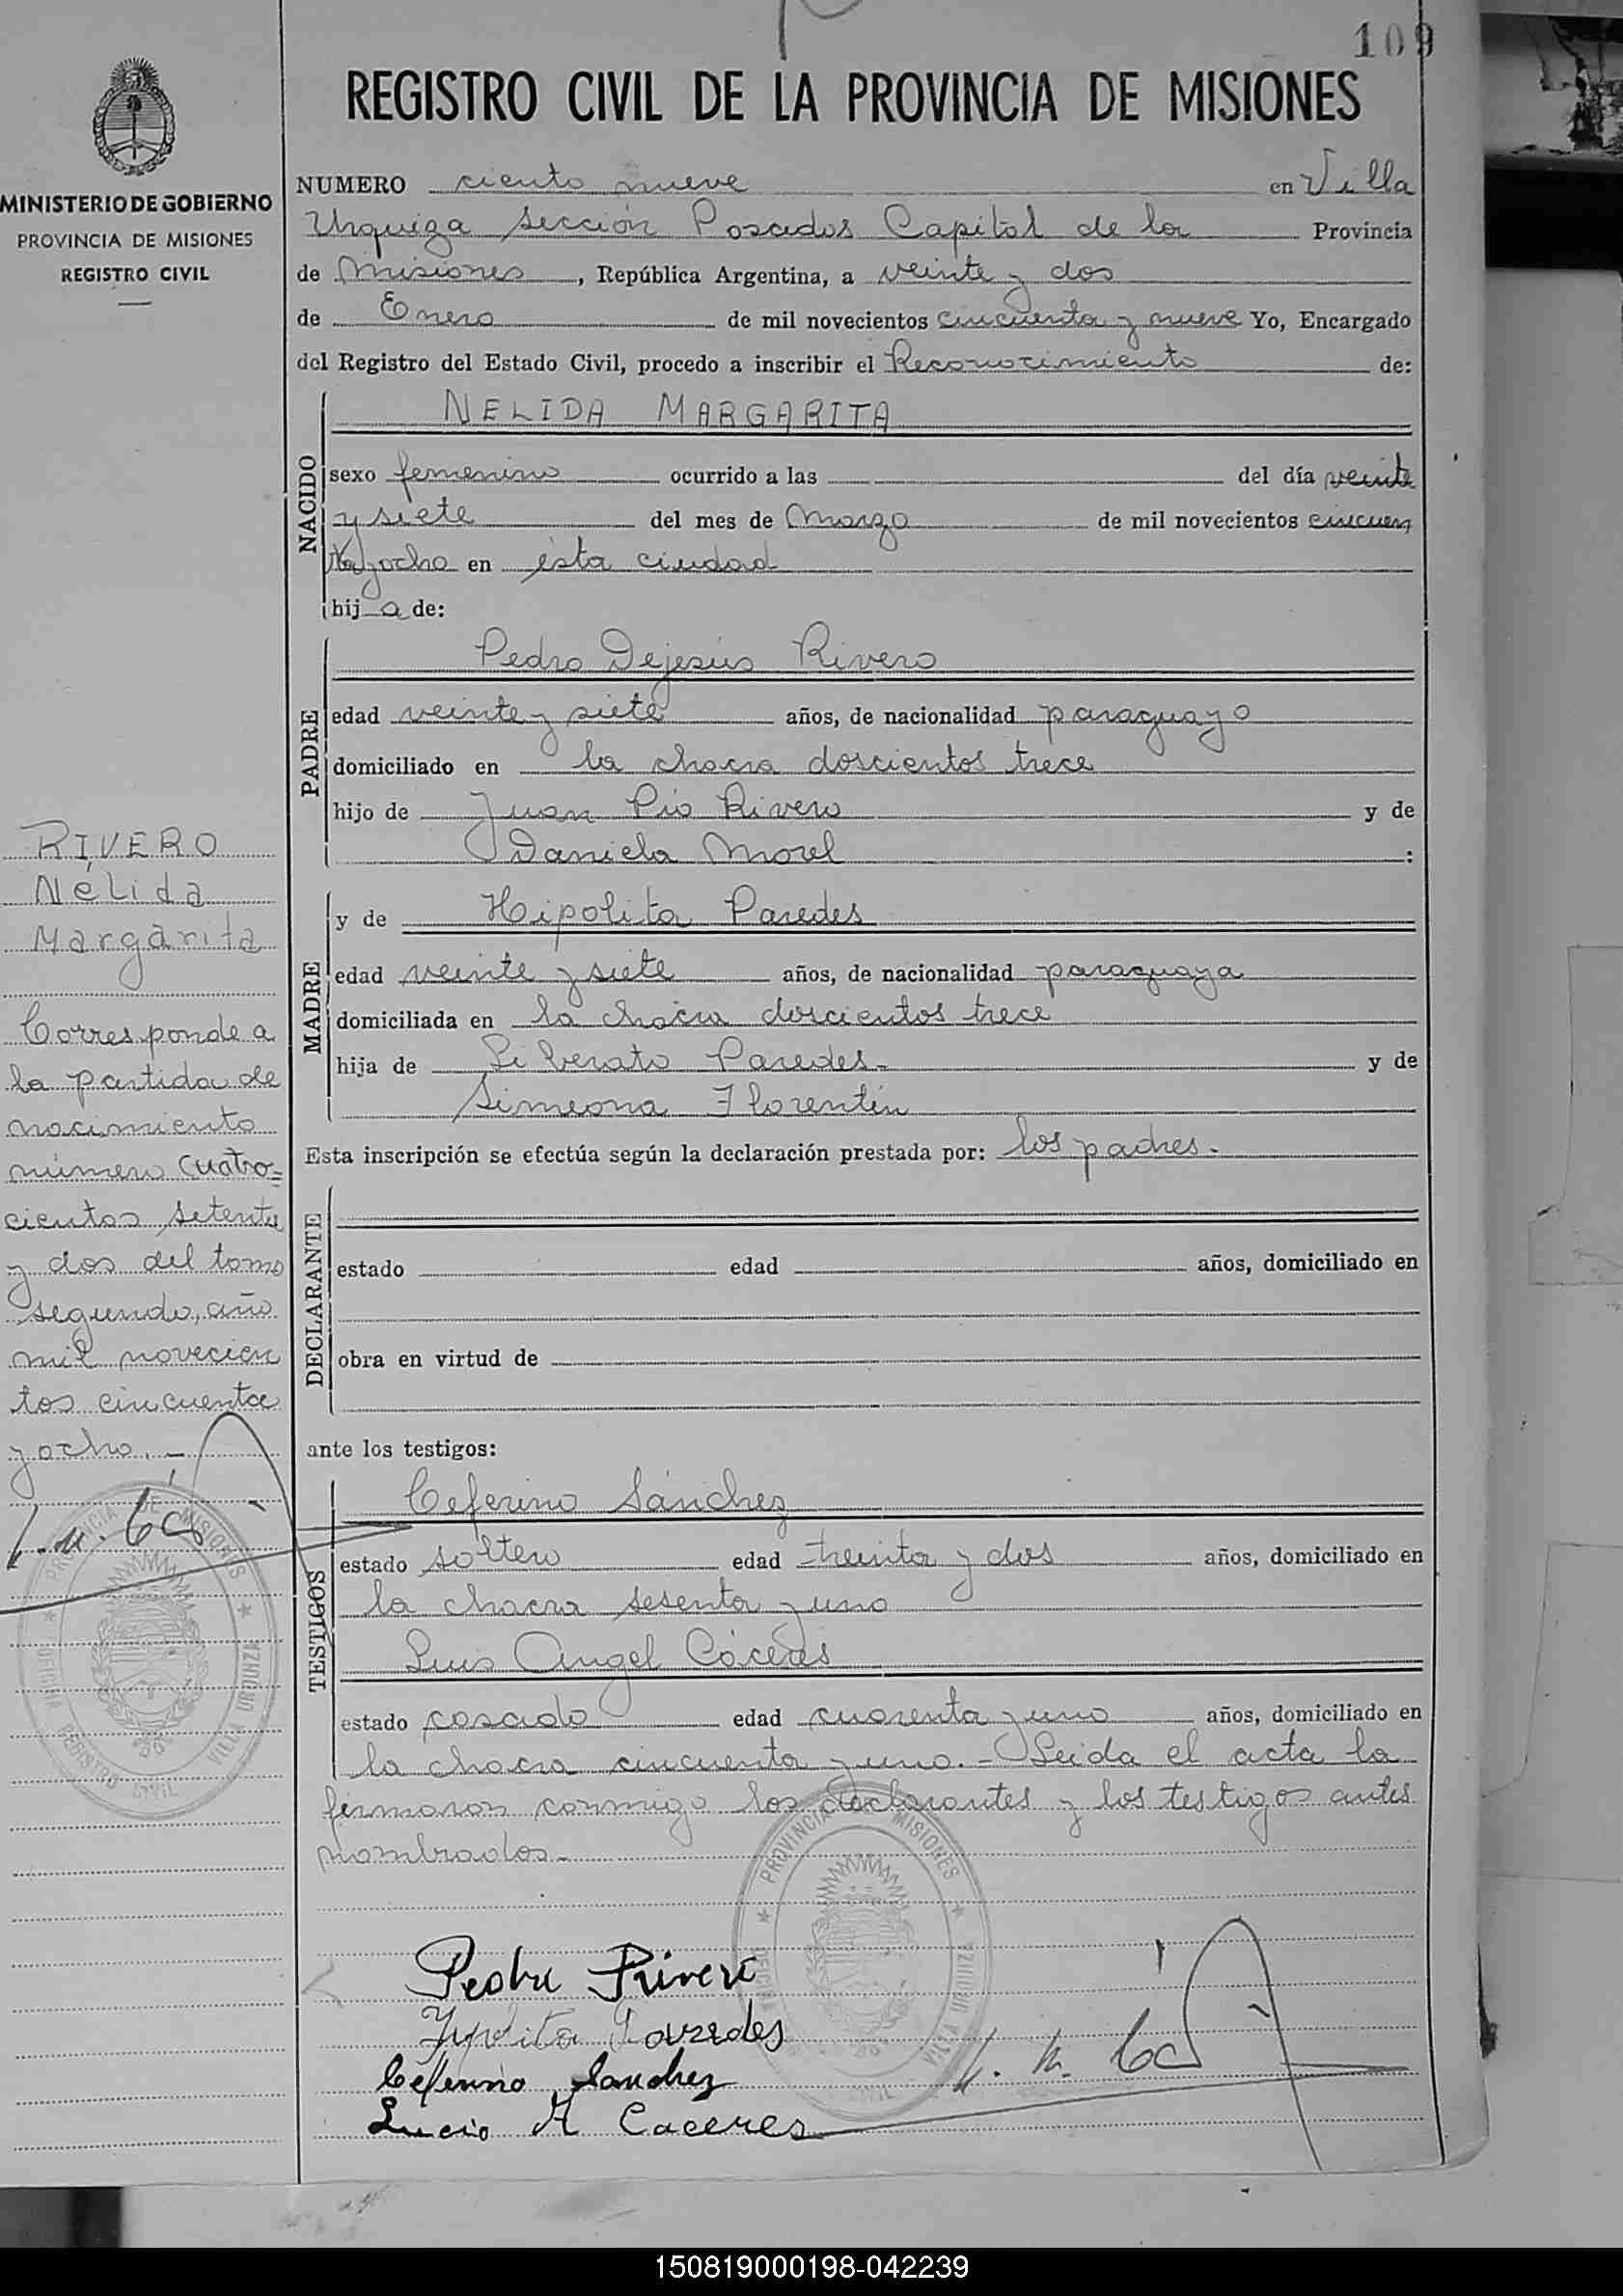 109
REGISTRO CIVIL DE LA PROVINCIA DE MISIONES
MINISTERIO DE GOBIERNO
PROVINCIA DE MISIONES
REGISTRO CIVIL
NUMERO ciento nueve en Villa
Urquiza sección Posadas Capital de la Provincia
de Misiones, República Argentina, a veinte y dos
de Enero de mil novecientos cincuenta y nueve Yo, Encargado
del Registro del Estado Civil, procedo a inscribir el Reconocimiento de:
NACIDO
NELIDA MARGARITA
sexo femenino ocurrido a las del día veinte
y siete del mes de Marzo de mil novecientos cincuen
ta y ocho en ésta ciudad
hij a de:
PADRE
Pedro Dejesús Rivero
edad veinte y siete años, de nacionalidad paraguayo
domiciliado en la chacra doscientos trece
hijo de Juan Pío Rivero y de
Daniela Morel :
MADRE
y de Hipolita Paredes
edad veinte y siete años, de nacionalidad paraguaya
domiciliada en la chacra doscientos trece
hija de Liberato Paredes- y de
Simeona Florentín
Esta inscripción se efectúa según la declaración prestada por: los padres.-
DECLARANTE
estado edad años, domiciliado en
obra en virtud de
ante los testigos:
TESTIGOS
Ceferino Sánchez
estado soltero edad treinta y dos años, domiciliado en
la chacra sesenta y uno
Luis Angel Cáceres
estado casado edad cuarenta y uno años, domiciliado en
la chacra cincuenta y uno.- Leida el acta la
firmaron conmigo los declarantes y los testigos antes
nombrados.-
Pedro Rivero
Paredes
Ceferino Sanchez
Lucio A Caceres
PROVINCIA DE MISIONES
REGISTRO CIVIL
RIVERO
Nélida
Margarita
Corresponde a
la partida de
nacimiento
número cuatro-
cientos setenta
y dos del tomo
segundo, año
mil novecien
tos cincuenta
y ocho.-
PROVINCIA DE MISIONES
OFICINA REGISTRO CIVIL VILLA URQUIZA
150819000198-042239